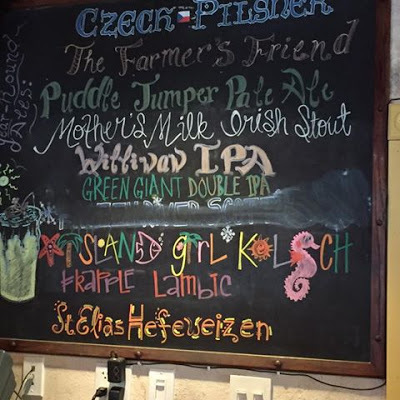 Year-Round
Ales:
CZECH PILSNER
The Farmer's Friend
Puddle Jumper Pale Ale
Mother's Milk Irish Stout
Williwaw IPA
GREEN GIANT DOUBLE IPA
ISLAND GIRL KOLSCH
FRAPPLE LAMBIC
St. Elias Hefeweizen